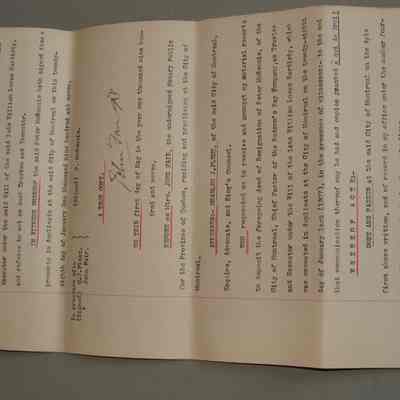 Executor under the said Will of the said late William Lunes Bartlety,
and refuses to act as such Trustee and Executor.
IN WITNESS WHEREOF the said Peter McKenzie hath signed these
presents in duplicate at the said City of Montreal on this twenty-
eighth day of January One thousand nine hundred and seven.
In presence of:- (Signed) P. McKenzie.
(Signed) C.J.Fleet.
John Fair.
A TRUE COPY.
ON THIS first day of May in the year one thousand nine hun-
dred and seven.
BEFORE Me, JOHN FAIR, the undersigned Notary Public
for the Province of Quebec, residing and practising at the City of
Montreal.
APPEARED:- CHARLES J.FLEET, of the said City of Montreal,
Esquire, Advocate, and King's Counsel.
WHO requested me to receive and amongst my notarial records
to deposit the foregoing deed of Resignation of Peter McKenzie, of the
City of Montreal, Chief Factor of the Hudson's Bay Company, as Trustee
and Executor under the Will of the late William Lunes Bartlety, which
was executed in duplicate at the City of Montreal on the twenty-eighth
day of January last (1907), in the presence of witnesses- to the end
that communication thereof may be had and copies granted à qui de droit
WHEREOF ACT IS-
DONE AND PASSED at the said City of Montreal on the date
first above written, and of record in my office under the number four-